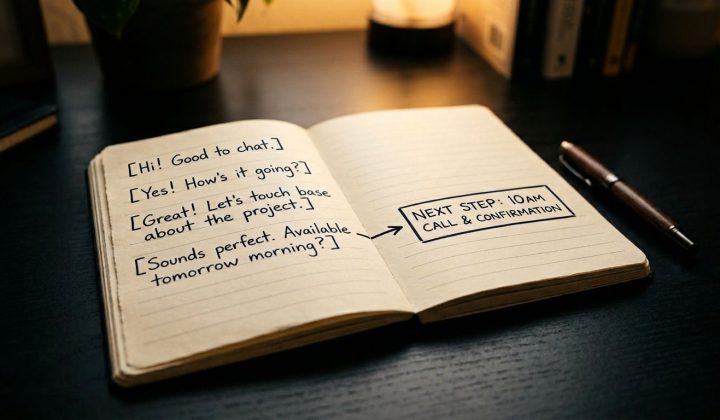 [Hi! Good to chat.]
[Yes! How's it going?]
[Great! Let's touch base
about the project.]
[Sounds perfect. Available
tomorrow morning?]
NEXT STEP: 10AM
CALL & CONFIRMATION